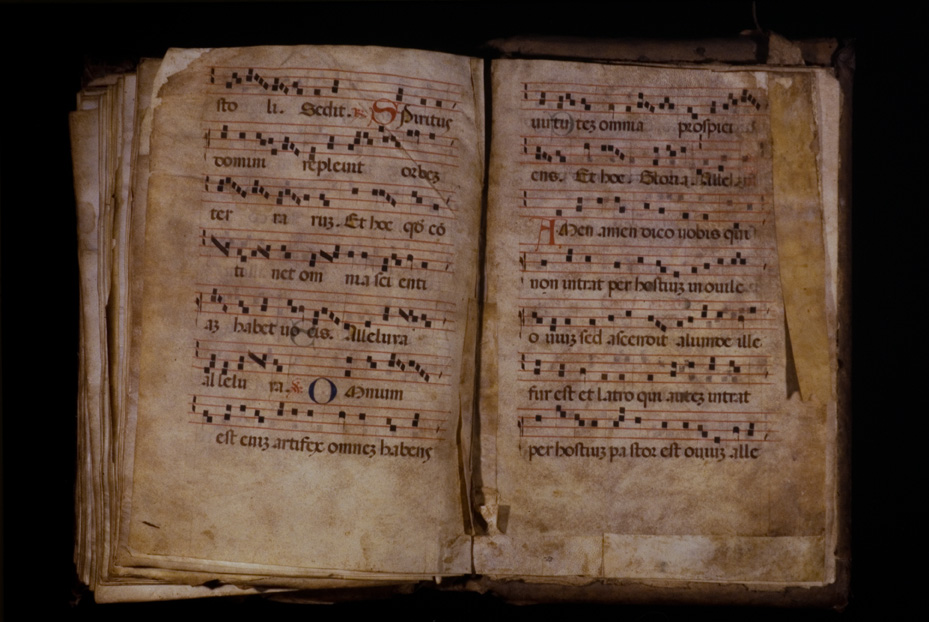 sto li. Sedit. Spiritus
domini repleuit orbez
ter ra ruz. Et hoc qđ cō
ti net om nia sci enti
az habet uo cis. Alleluya
al lelu ya. O Mnium
est eniz artifex omnez habens
uirtu tez omnia prospici
ens. Et hoc. Gloria. Allelu
AMen amen dico uobis qui
non intrat per hostiuz in ouile
o uiuz sed ascendit aliunde ille
fur est et Latro qui autez intrat
per hostiuz pa stor est ouiuz alle